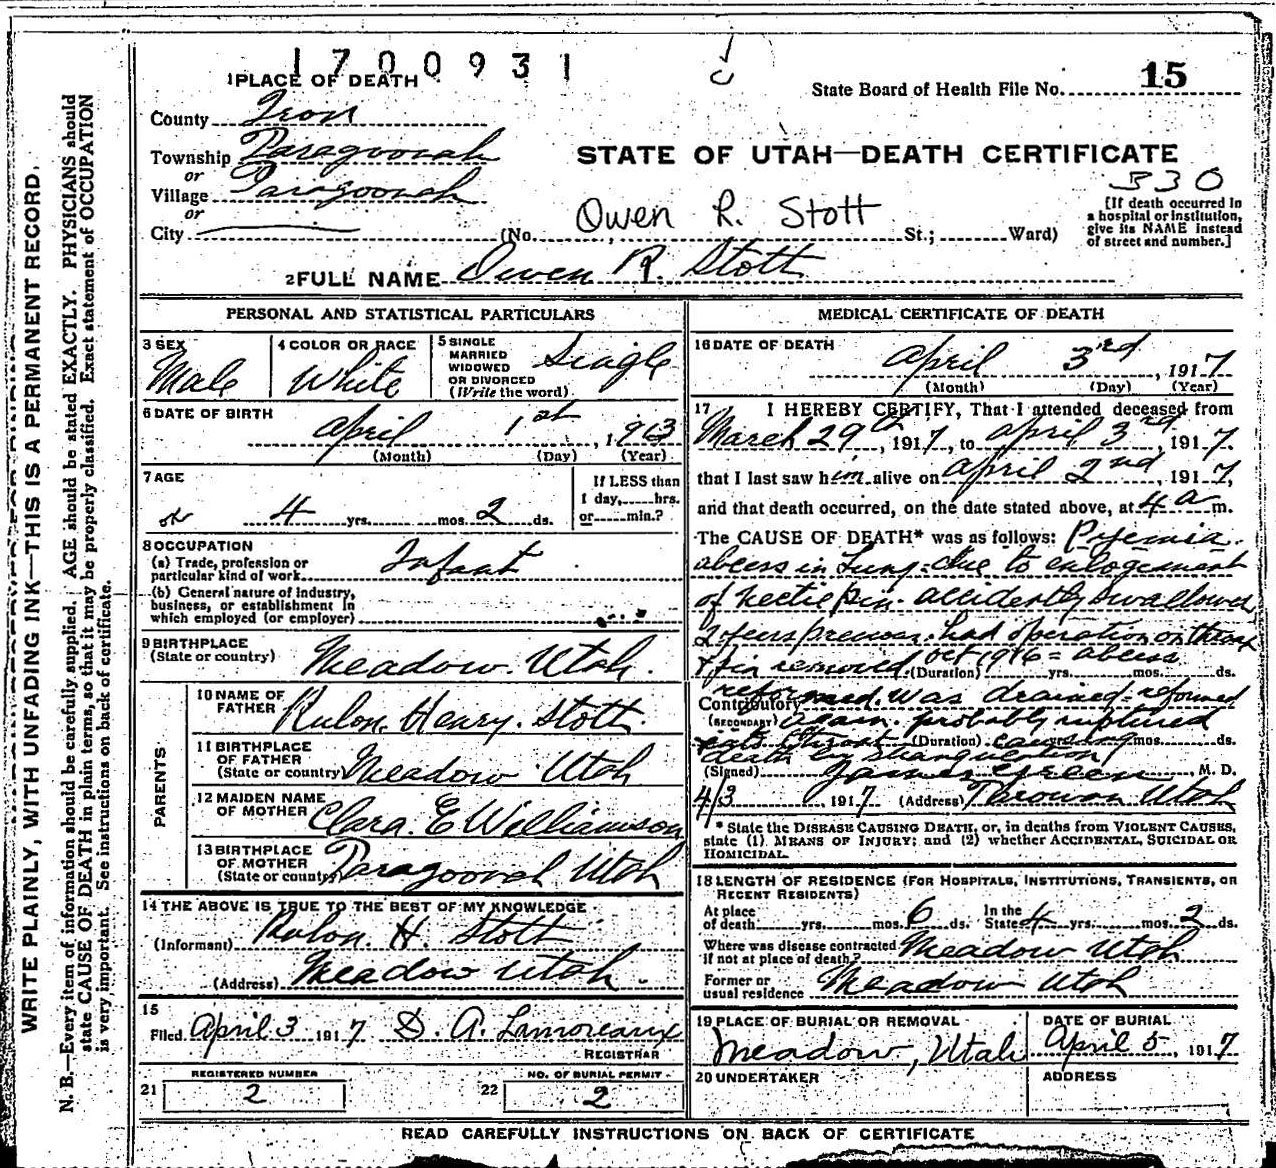 1700931
1 PLACE OF DEATH
State Board of Health File No. 15
County Iron
Township Paragoonah
or
Village Paragoonah
or
City
STATE OF UTAH—DEATH CERTIFICATE
330
[If death occurred in
a hospital or institution,
give its NAME instead
of street and number.]
Owen R. Stott
(No. , St.; Ward)
2 FULL NAME Owen R. Stott
PERSONAL AND STATISTICAL PARTICULARS
3 SEX
Male
4 COLOR OR RACE
White
5 SINGLE
MARRIED
WIDOWED
OR DIVORCED
(Write the word)
Single
6 DATE OF BIRTH
April 1st, 1913
(Month) (Day) (Year)
7 AGE
4 yrs. mos. 2 ds.
If LESS than
1 day, hrs.
or min.?
8 OCCUPATION
(a) Trade, profession or
particular kind of work
Infant
(b) General nature of industry,
business, or establishment in
which employed (or employer)
9 BIRTHPLACE
(State or country)
Meadow. Utah.
PARENTS
10 NAME OF
FATHER
Rulon. Henry. Stott.
11 BIRTHPLACE
OF FATHER
(State or country)
Meadow Utah
12 MAIDEN NAME
OF MOTHER
Clara. E Williamson
13 BIRTHPLACE
OF MOTHER
(State or country)
Paragoonah Utah
14 THE ABOVE IS TRUE TO THE BEST OF MY KNOWLEDGE
(Informant) Rulon. H. Stott
(Address) Meadow Utah.
15
Filed April 3 1917 D. A. Lamoreaux
REGISTRAR
REGISTERED NUMBER
21 2
NO. OF BURIAL PERMIT
22 2
MEDICAL CERTIFICATE OF DEATH
16 DATE OF DEATH
April 3rd, 1917
(Month) (Day) (Year)
17 I HEREBY CERTIFY, That I attended deceased from
March 29th, 1917, to April 3rd, 1917,
that I last saw him alive on April 2nd, 1917,
and that death occurred, on the date stated above, at 4 a m.
The CAUSE OF DEATH* was as follows: Pyemia.
abcess in Lung due to
of pin. accidently swallowed
2 years had operation on throat
& pin removed. Oct 1916 = abcess
(Duration) yrs. mos. ds.
reformed. was drained. reformed
Contributory
(SECONDARY)
again. probably ruptured
into throat causing
(Duration) yrs. mos. ds.
death by strangulation
(Signed) James Green, M. D.
4/3, 1917 (Address) Parowan Utah
* State the DISEASE CAUSING DEATH, or, in deaths from VIOLENT CAUSES,
state (1) MEANS OF INJURY; and (2) whether ACCIDENTAL, SUICIDAL OR
HOMICIDAL.
18 LENGTH OF RESIDENCE (FOR HOSPITALS, INSTITUTIONS, TRANSIENTS, OR
RECENT RESIDENTS)
At place
of death yrs. mos. 6 ds.
In the
State 4 yrs. mos. 2 ds.
Where was disease contracted
if not at place of death?
Meadow Utah
Former or
usual residence
Meadow Utah
19 PLACE OF BURIAL OR REMOVAL
Meadow, Utah
DATE OF BURIAL
April 5, 1917
20 UNDERTAKER
ADDRESS
READ CAREFULLY INSTRUCTIONS ON BACK OF CERTIFICATE
WRITE PLAINLY, WITH UNFADING INK—THIS IS A PERMANENT RECORD.
N. B.—Every item of information should be carefully supplied. AGE should be stated EXACTLY. PHYSICIANS should
state CAUSE OF DEATH in plain terms, so that it may be properly classified. Exact statement of OCCUPATION
is very important. See instructions on back of certificate.